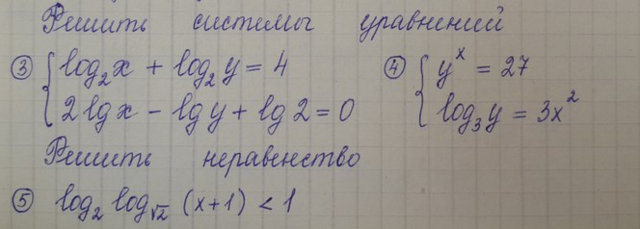 Решить системы уравнений
③ { log₂x + log₂y = 4
2lgx − lgy + lg2 = 0
④ { yˣ = 27
log₃y = 3x²
Решить неравенство
⑤ log₂ log_√2 (x+1) < 1